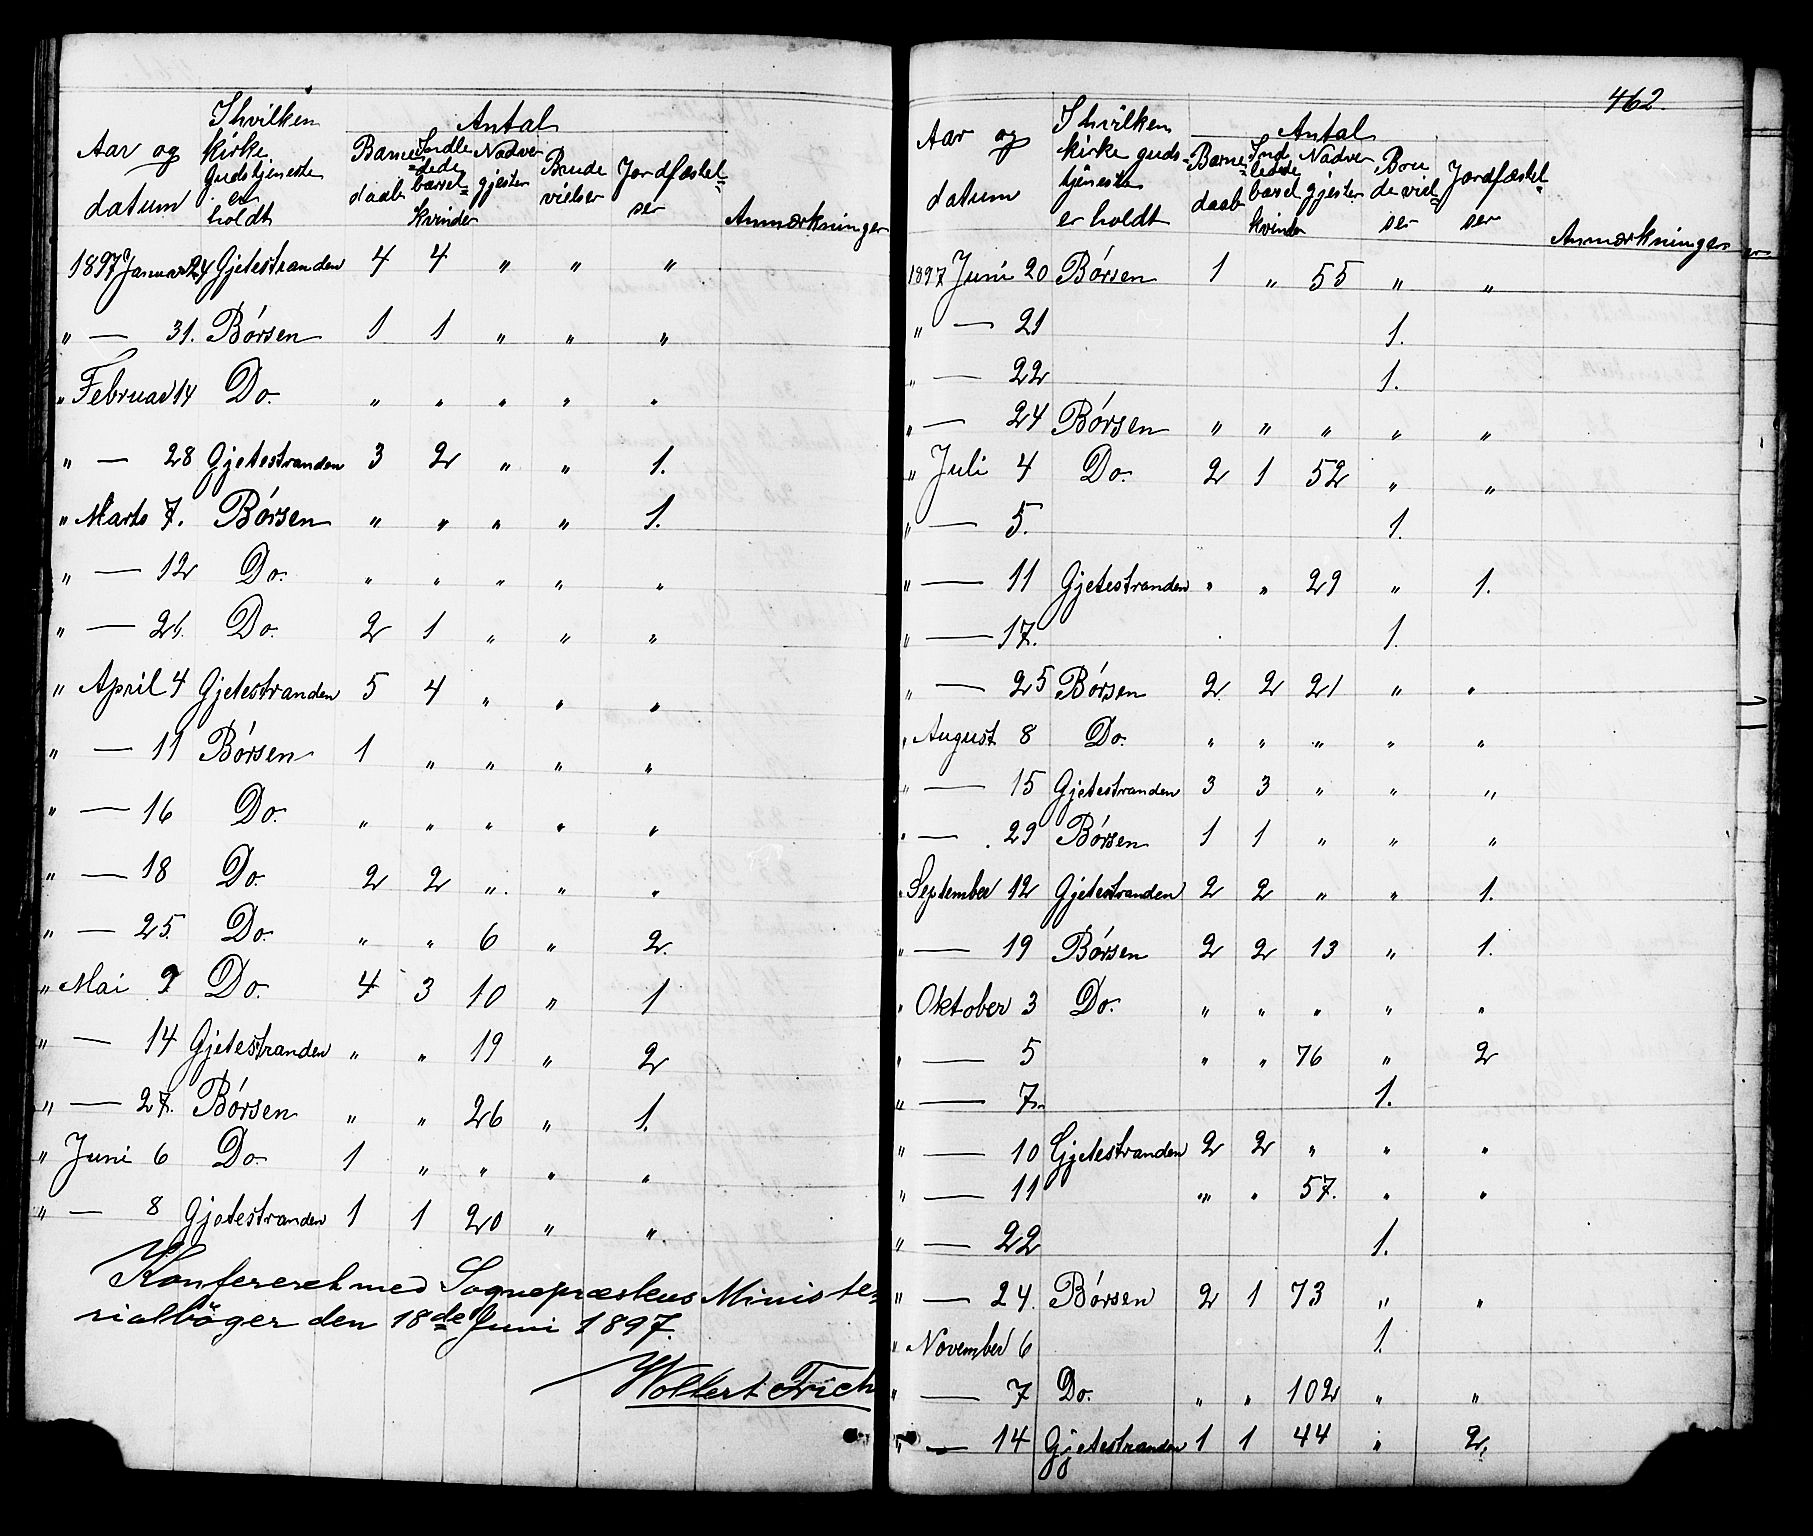 Aar og datum | I hvilken kirke Gudstjeneste er holdt | Antal | Anmærkninger
Barnedaab | Indledede barselkvinder | Nadvergjester | Brudevielser | Jordfæstelser
1897 Januar 24 Gjetestranden 4 4 " " "
" — 31. Børsen 1 1 " " "
" Februar 14 Do. " " " " "
" — 28 Gjetestranden 3 2 " " 1.
" Marts 7. Børsen " " " " 1.
" — 12 Do. " " " " "
" — 21. Do. 2 1 " " "
" April 4 Gjetestranden 5 4 " " "
" — 11 Børsen 1 " " " "
" — 16 Do. " " " " "
" — 18 Do. 2 2 " " "
" — 25. Do. " " 6 " 2.
" Mai 9 Do. 4 3 10 " 1
" — 14 Gjetestranden " " 19 " 2
" — 27. Børsen " " 26 " 1.
" Juni 6 Do. 1 " " " "
" — 8 Gjetestranden 1 1 20 " "
Konfereret med Sognepræstens Ministe-
rialbøger den 18de Juni 1897.
Wollert Frich
462.
Aar og datum | I hvilken kirke gudstjeneste er holdt | Antal | Anmærkninger
Barnedaab | Indledede barselkvinder | Nadvergjester | Brudevielser | Jordfæstelser
1897 Juni 20 Børsen 1 " 55 " "
" — 21 1.
" — 22 1.
" — 24 Børsen " " " " "
" Juli 4 Do. 2 1 52 " "
" — 5. 1.
" — 11 Gjetestranden " " 29 " 1.
" — 17. 1.
" — 25 Børsen 2 2 21 " "
" August 8 Do. " " " " "
" — 15 Gjetestranden 3 3 " " "
" — 29 Børsen 1 1 " " "
" September 12 Gjetestranden 2 2 " " 1.
" — 19 Børsen 2 2 13 " 1.
" Oktober 3 Do. " " " " "
" — 5 " " 76 " 2
" — 7. 1.
" — 10 Gjetestranden 2 2 " " "
" — 11 " " 57. " "
" — 22 1.
" — 24. Børsen 2 1 73 " "
" November 6 1.
" — 7 Do. " " 102 " "
" — 14 Gjetestranden 1 1 44 " 2.